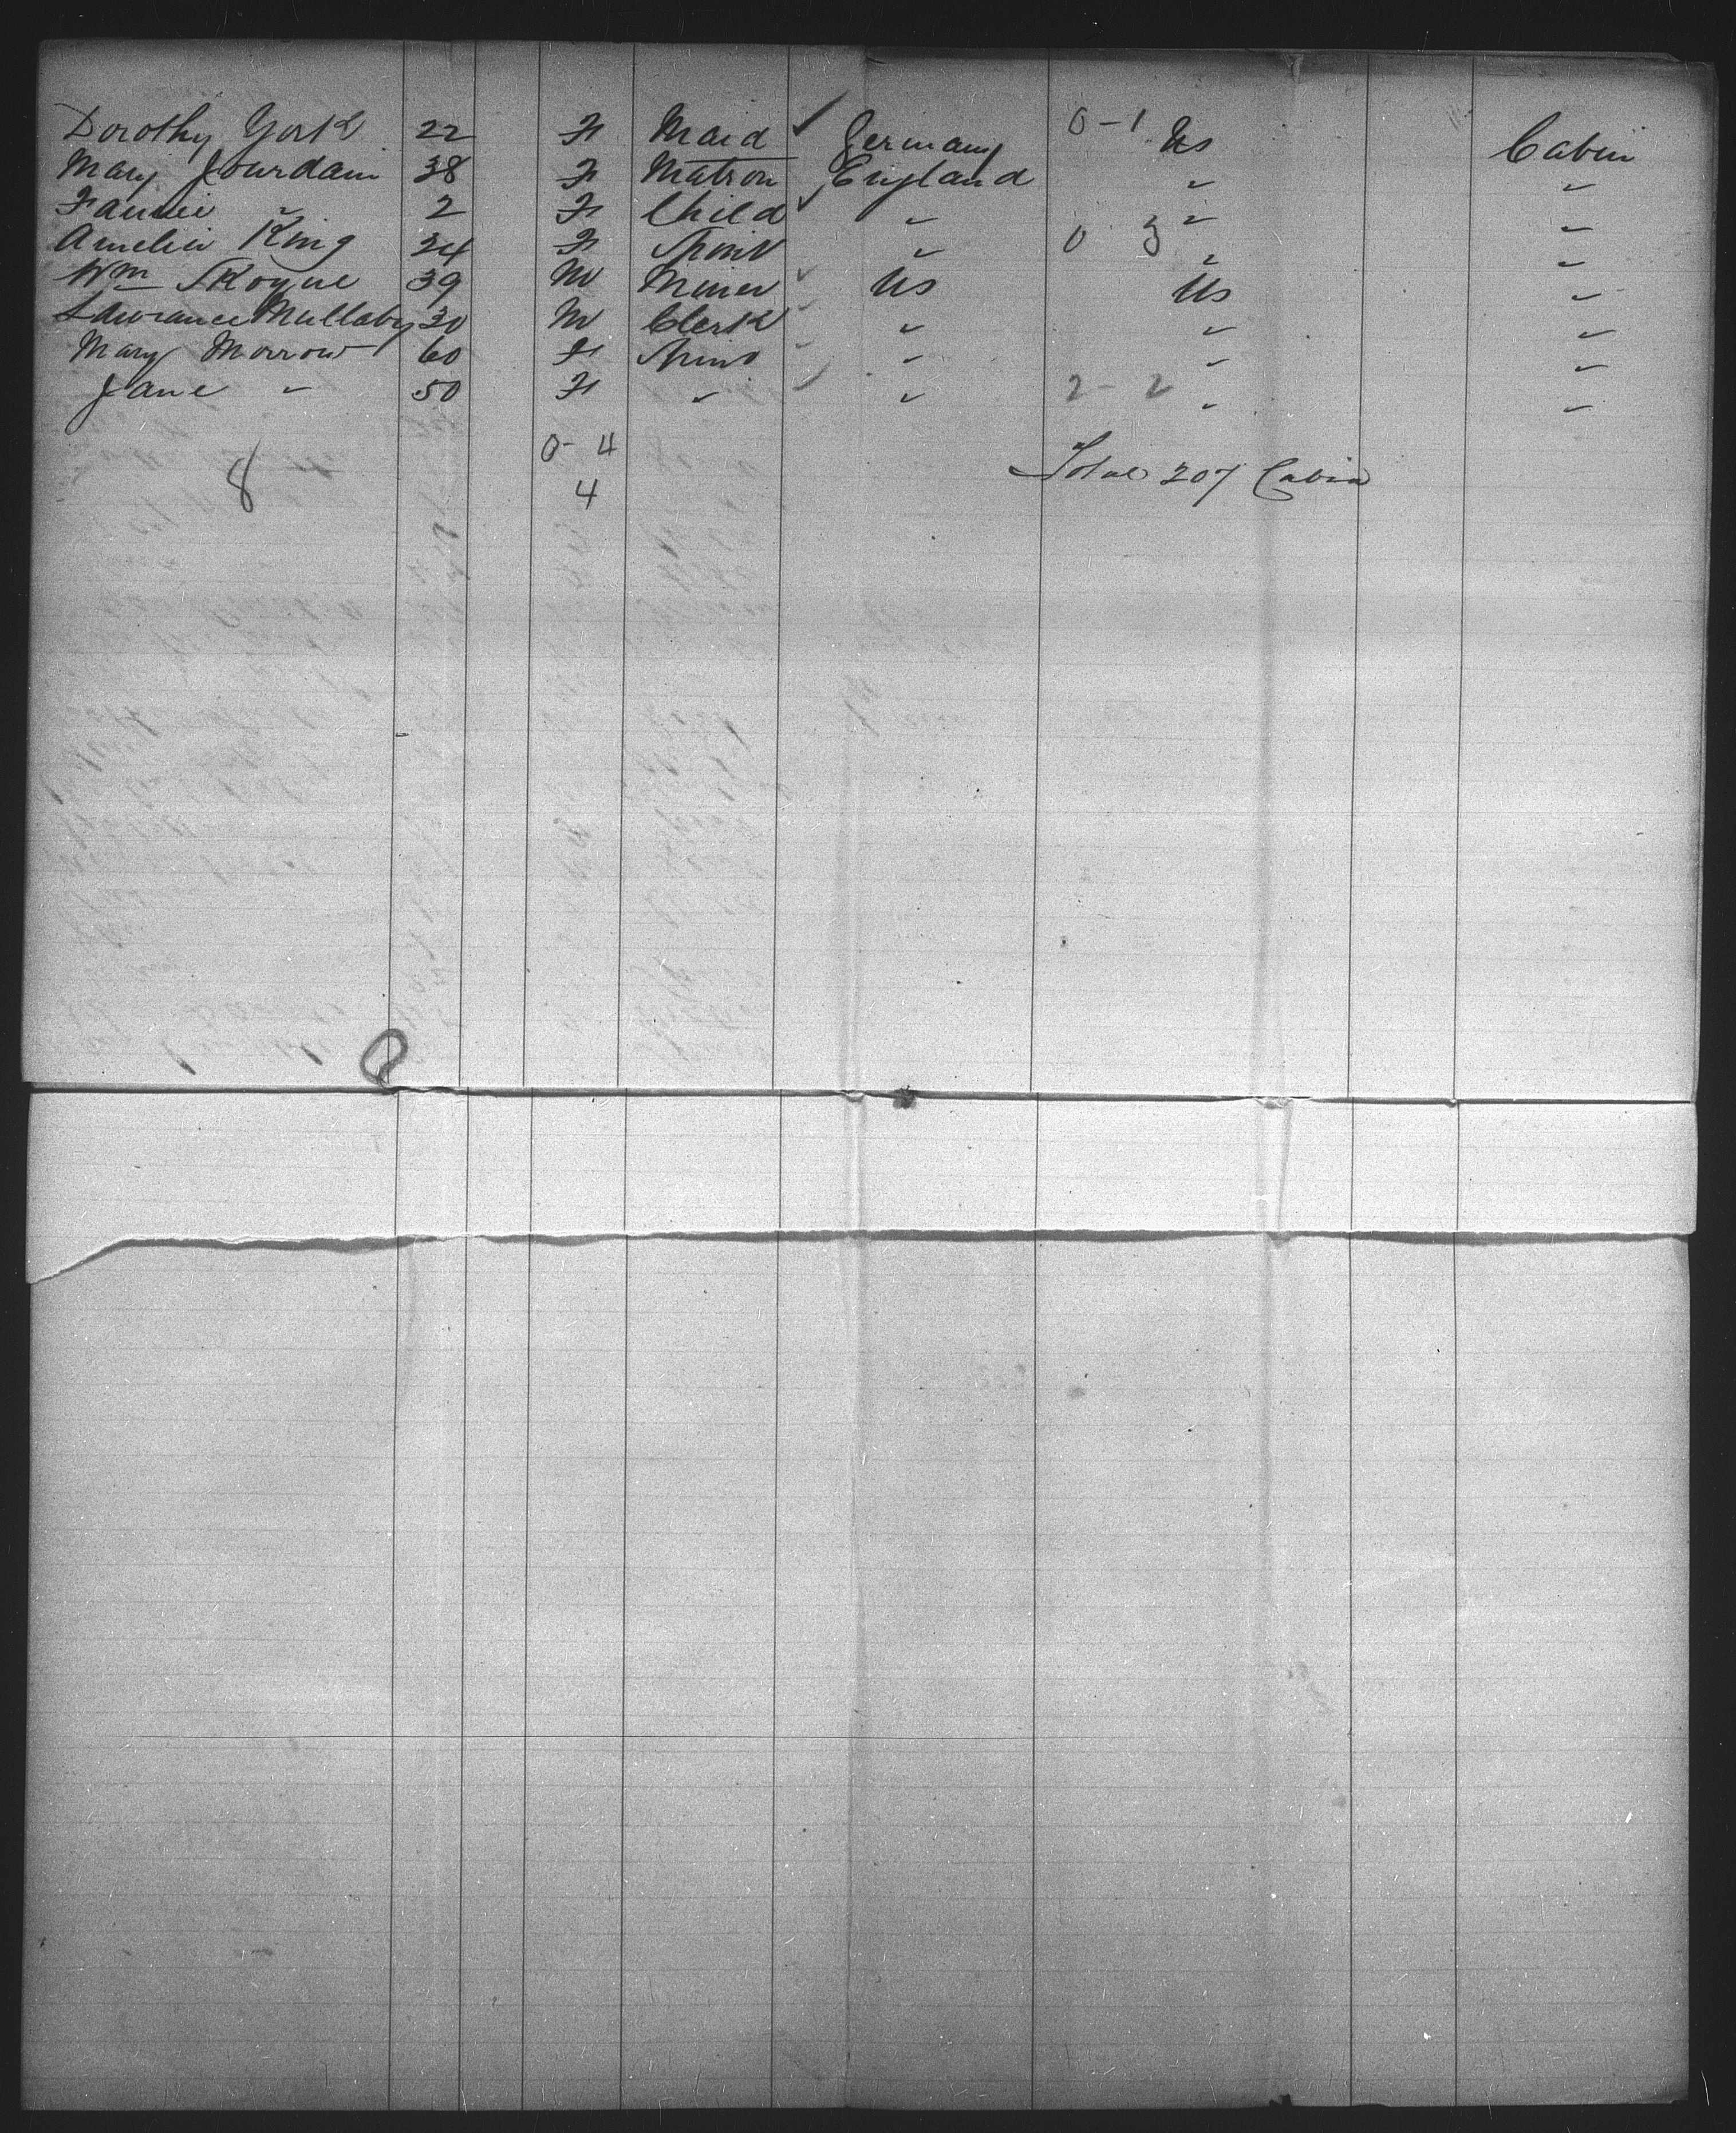 Dorothy York 22 F Maid ✓ Germany 0-1 Us Cabin
Mary Jourdain 38 F Matron England " "
Fannie " 2 F Child " " "
Amelia King 24 F Spins " 0 3 " "
Wm Skogue 39 M Miner Us Us "
Lawrance Mullaby 30 M Clerk " " "
Mary Morrow 60 F Spins " " "
Jane " 50 F " " 2-2 " "
0-4
8 4 Total 207 Cabin